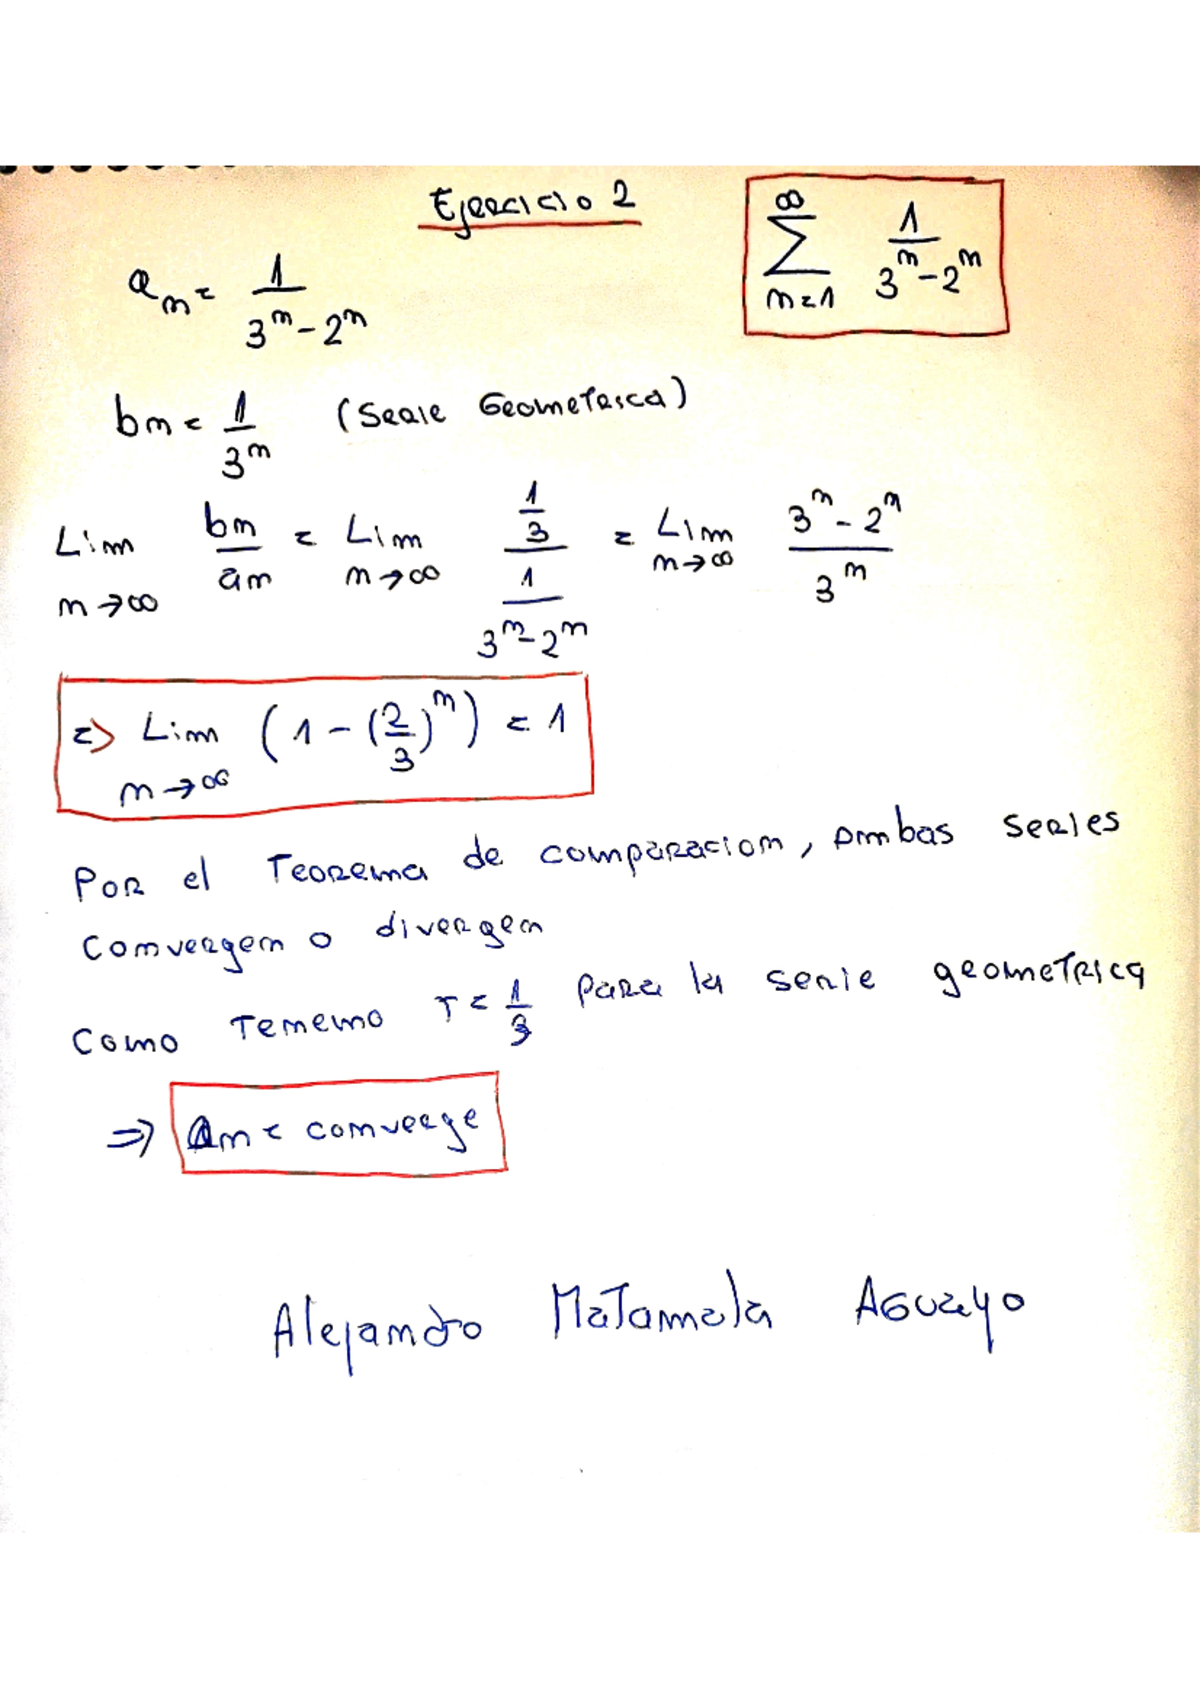 Ejercicio 2
∑_{n=1}^{∞} 1/(3^n - 2^n)
a_n = 1/(3^n - 2^n)
b_n = 1/3^n (Serie Geometrica)
Lim_{n→∞} b_n/a_n = Lim_{n→∞} (1/3)/(1/(3^n - 2^n)) = Lim_{n→∞} (3^n - 2^n)/3^n
=> Lim_{n→∞} (1 - (2/3)^n) = 1
Por el Teorema de comparacion, ambas series
convergen o divergen
Como Tenemo r = 1/3 para la serie geometrica
=> an = converge
Alejandro Matamala Aguayo